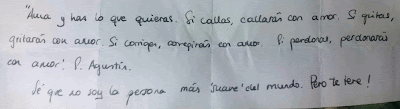 "Ama y haz lo que quieras. Si callas, callarás con amor. Si gritas,
gritarás con amor. Si corriges, corregirás con amor. Si perdonas, perdonarás
con amor". S. Agustín.
Sé que no soy la persona más 'suave' del mundo. Pero te